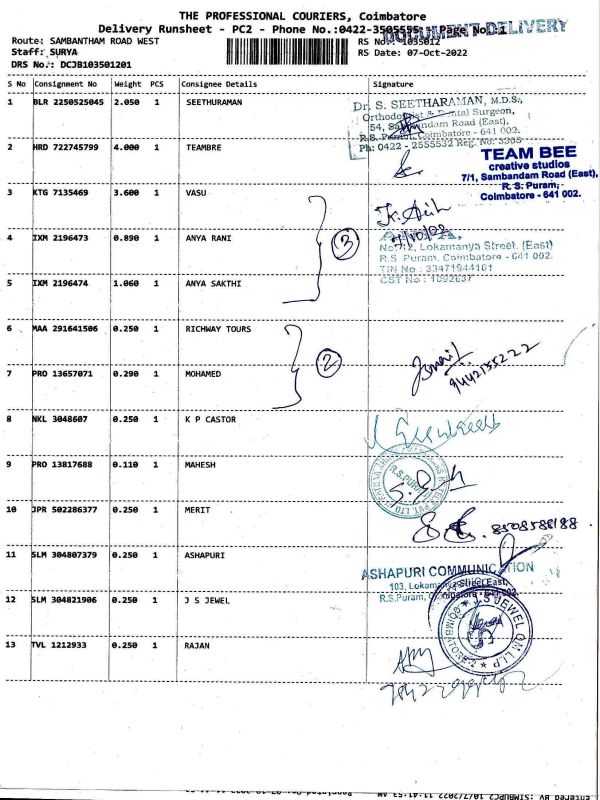 THE PROFESSIONAL COURIERS, Coimbatore
Delivery Runsheet - PC2 - Phone No.:0422-3505555 Page No 1
DOCUMENT DELIVERY
Route: SAMBANTHAM ROAD WEST
RS No.: 1035012
Staff: SURYA
RS Date: 07-Oct-2022
DRS No.: DCJB103501201
S No Consignment No Weight PCS Consignee Details Signature
1 BLR 2250525045 2.050 1 SEETHURAMAN
Dr. S. SEETHARAMAN, M.D.S.,
Orthodontist & Dental Surgeon,
54, Sambandam Road (East),
R.S. Puram, Coimbatore - 641 002.
Ph: 0422 - 2555532 Reg. No: 3303
2 HRD 722745799 4.000 1 TEAMBRE
TEAM BEE
creative studios
7/1, Sambandam Road (East),
R. S. Puram,
Coimbatore - 641 002.
3 KTG 7135469 3.600 1 VASU
7/10/22
4 IXM 2196473 0.890 1 ANYA RANI
3
No: 12, Lokamanya Street, (East)
R.S. Puram, Coimbatore - 641 002.
TIN No : 33471944101
CST No : 1092637
5 IXM 2196474 1.060 1 ANYA SAKTHI
6 MAA 291641506 0.250 1 RICHWAY TOURS
2
7 PRO 13657071 0.290 1 MOHAMED
8 NKL 3048607 0.250 1 K P CASTOR
9 PRO 13817688 0.110 1 MAHESH
R.S.PURAM
10 JPR 502286377 0.250 1 MERIT
8508588188
11 SLM 304807379 0.250 1 ASHAPURI
ASHAPURI COMMUNICATION
103, Lokamanya Street East,
R.S.Puram, Coimbatore - 641 002.
12 SLM 304821906 0.250 1 J S JEWEL
J.S JEWEL ON LLP
COIMBATORE-2
13 TVL 1212933 0.250 1 RAJAN